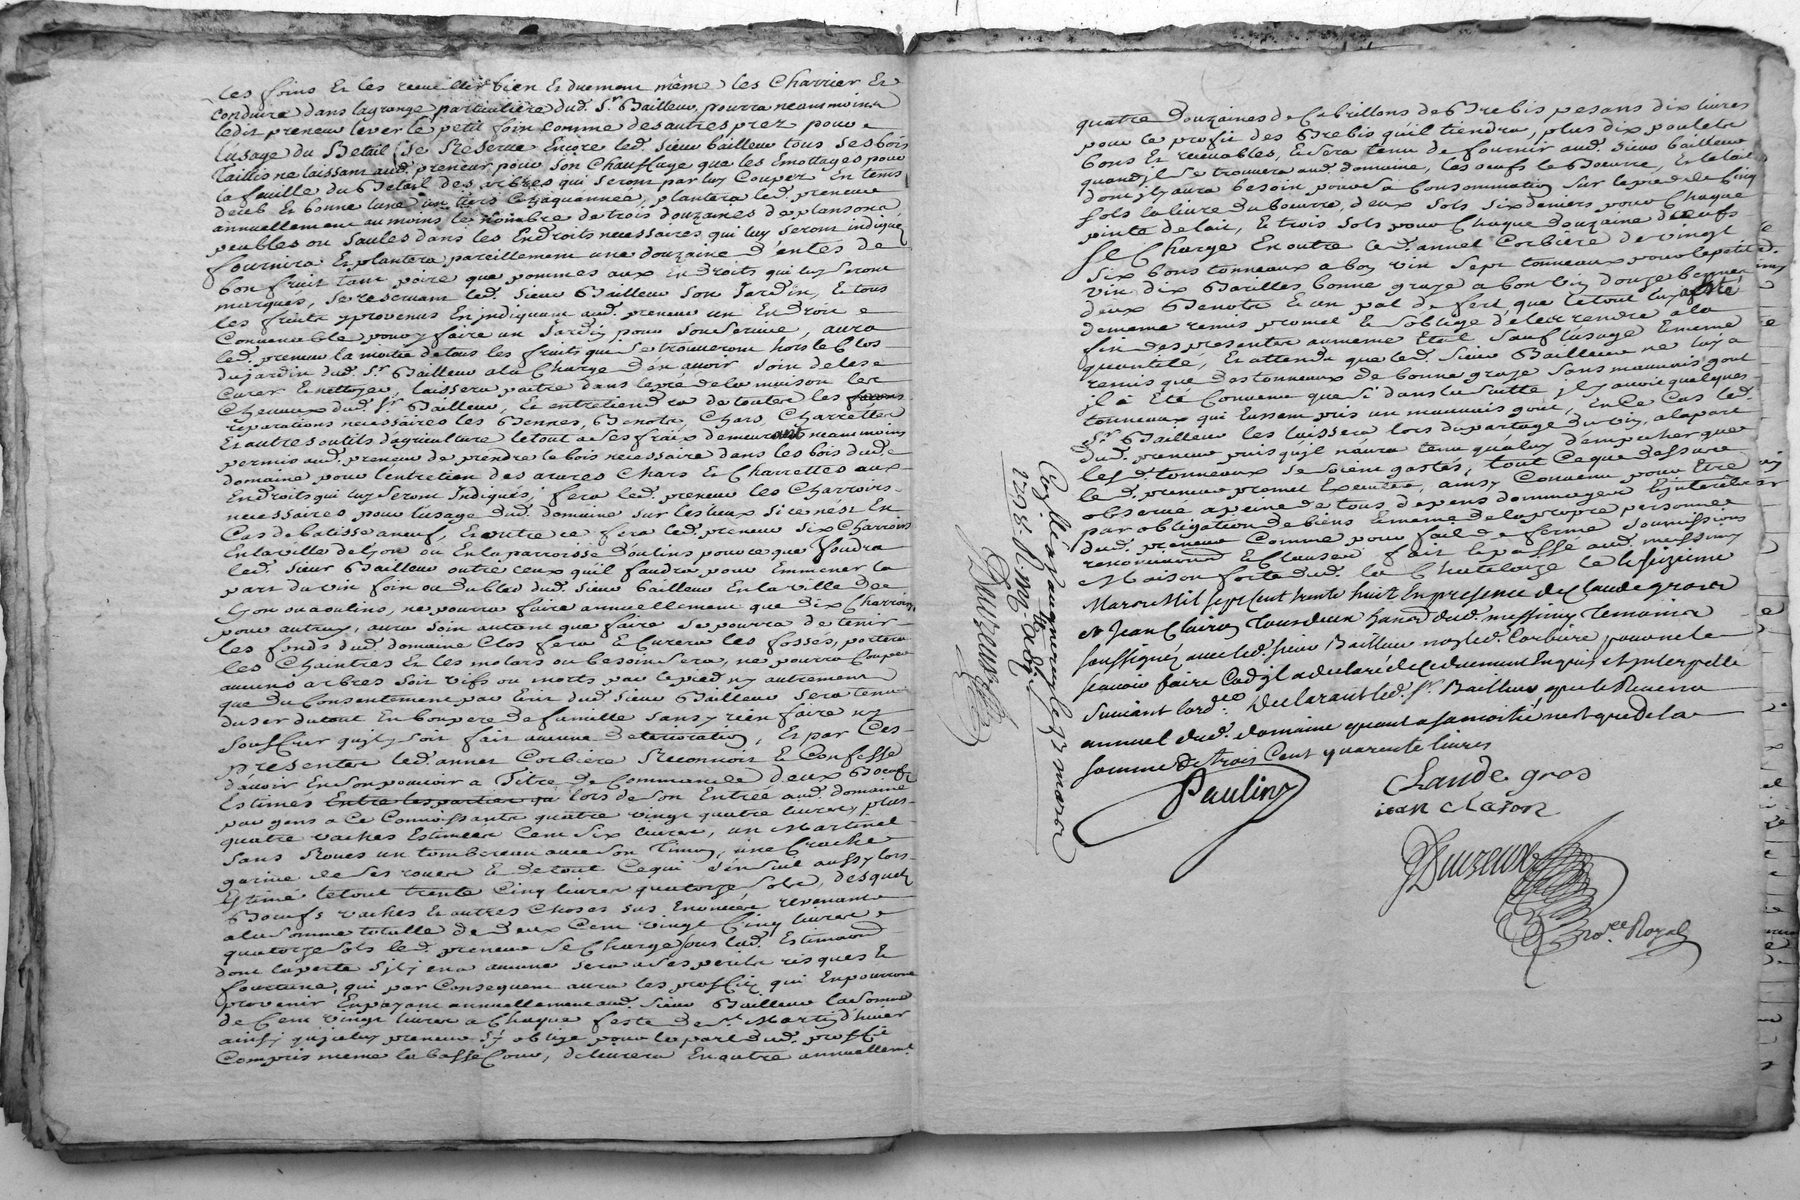 les foins Et les recueillir bien Et duement même les Charrier Et
conduire dans la grange particulière dud. Sr. Bailleur, pourra neanmoins
ledit preneur lever le petit foin comme des autres prez pour
l'usage du Betail Se Reserve Encore led. sieur bailleur tous ses bois
Taillis ne laissant aud. preneur pour son Chauffage que les Emottages pour
la feuille du Betail des arbres qui seront par luy Couper En tems
deub Et bonne lune un tiers Chaque année, plantera led. preneur
annuellement au moins le nombre de trois douzaines de plansons
peubles ou saules dans les Endroits necessaires qui luy seront indiqué
fournira Et plantera pareillement une douzaine d'entes de
bon fruit tant poire que pommes aux Endroits qui luy seront
marqués, se reservant led. sieur Bailleur son Jardin, Et tous
les fruits y provenus En indiquant aud. preneur un Endroit
Convenable pour y faire un Jardin pour son service, aura
led. preneur la moitié de tous les fruits qui se trouveront hors le Clos
du jardin dud. Sr. Bailleur a la Charge d'en avoir soin de les
Curer Et nettoyer, laissera paitre dans le pré de la maison les
Chevaux dud. Sr. Bailleur, Et entretiendra de toutes les
reparations necessaires les Bennes, Benots, Chars, Charrettes
Et autres outils d'agriculture le tout a ses fraix demeurant neanmoins
permis aud. preneur de prendre le bois necessaire dans les bois dud.
domaine pour l'entretien des arares Chars Et Charrettes aux
Endroits qui luy seront Indiqués, fera led. preneur les Charrois
necessaires pour l'usage dud. domaine sur les lieux si ce nest En
Cas de batisse a neuf, En outre ce fera led. preneur six Charrois
En la ville de Lyon ou En la parroisse d'oulins pour ce que Voudra
led. sieur Bailleur outre ceux qu'il faudra pour Emmener la
part du vin foin ou du bled dud. sieur bailleur En la ville de
Lyon ou a oulins, ne pourra faire annuellement que dix Charrois
pour autruy, aura soin autant que faire se pourra de tenir
les fonds dud. domaine Clos fera Et Curera les fossés, portera
les Chaintres Et les molars ou besoin sera, ne pourra Couper
aucuns arbres soit vifs ou morts par le pied ny autrement
que du Consentement par Ecrit dud. sieur Bailleur sera tenu
duser du tout En bon pere de famille sans y rien faire ny
souffrir qu'il y soit fait aucune deterioration, Et par Ces
presentes led. annet Corbiere Reconnoit Et Confesse
d'avoir En son pouvoir a Titre de Commande deux Boeufs
Estimés Entre les parties lors de son Entrée aud. domaine
par gens a ce Connoissants quatre vingt quatre livres, plus
quatre vaches Estimées Cent six livres, un Martinel
sans Roues un tombereau avec son Timon, une
garnie de ses roues Et de tout Ce qui s'en suit aussy lors
Estimé le tout trente Cinq livres quatorze sols, desquels
Boeufs vaches Et autres choses sus Enoncées revenant
a la somme totalle de deux Cent vingt Cinq livres
quatorze sols led. preneur se Charge sous lad. Estimation
dont la perte s'il y en a aucune sera a ses perils risques Et
fourtune, qui par Consequent aura les proffits qui En pourront
provenir En payant annuellement aud. sieur Bailleur la somme
de Cent vingt livres a Chaque feste de St. Martin d'hiver
ainsy qu'iceluy preneur s'y oblige pour la part dud. proffit
Compris meme la basse Cour, delivrera En outre annuellemt.
quatre douzaines de Cabrillons de Brebis pesans dix livres
pour le profit des Brebis qu'il tiendra, plus dix poulets
bons Et recevables, Et sera tenu de fournir aud. sieur bailleur
quand il se trouvera aud. domaine, les oeufs le Boeurre, Et le lait
dont il aura besoin pour sa Consommation sur le pied de Cinq
sols la livre du beurre, deux sols six deniers pour Chaque
pinte de lait, Et trois sols pour Chaque douzaine d'oeufs
se Charge En outre led. annet Corbiere de vingt
six bons tonneaux a bon vin sept tonneaux pour le petit
vin dix Barilles bonne graze a bon vin douze bennes
deux Benots Et un pal de fert, que le tout luy a Eté
de meme remis promet Et s'oblige de les rendre a la
fin des presentes au meme Etat sauf l'usage Et meme
quantité, Et attendu que led. sieur Bailleur ne luy a
remis que des tonneaux de bonne graze sans mauvais gout
il a Eté Convenu que si dans la suitte il y avoit quelques
tonneaux qui Eussent pris un mauvais gout, En Ce Cas led.
Sr. Bailleur les laissera lors du partage du vin, a la part
dud. preneur puis qu'il n'aura tenu qu'a luy d'empecher que
lesd. tonneaux se soient gastés, tout Ce que dessus
led. preneur promet Executer, ainsy Convenu pour Etre
observé a peine de tous depens dommages Et interets
par obligation de biens Et meme de la propre personne
dud. preneur Comme pour fait de ferme soumissions
renonciations Et Clauses fait Et passé aud. messimy
Maison forte dud. la Chatelaize le seizieme
Mars Mil sept Cent trente huit En presence de Claude gros
et Jean Clairon Tous deux hants. dud. messimy Temoins
soussignés avec led. sieur Bailleur non led. Corbiere pour ne le
sçavoir faire Cad il a declaré de Ce duement Enquis et Interpellé
Suivant lordce Declarant led. Sr. Bailleur que le Revenu
annuel dud. domaine quant a sa moitié n'est que de la
somme de trois Cent quarente livres
Paulin
Claude gros
iean claron
Duvzeux
nore. Royal
Con.llé a Vaugneray le 27 mars
1738
Duvzeux